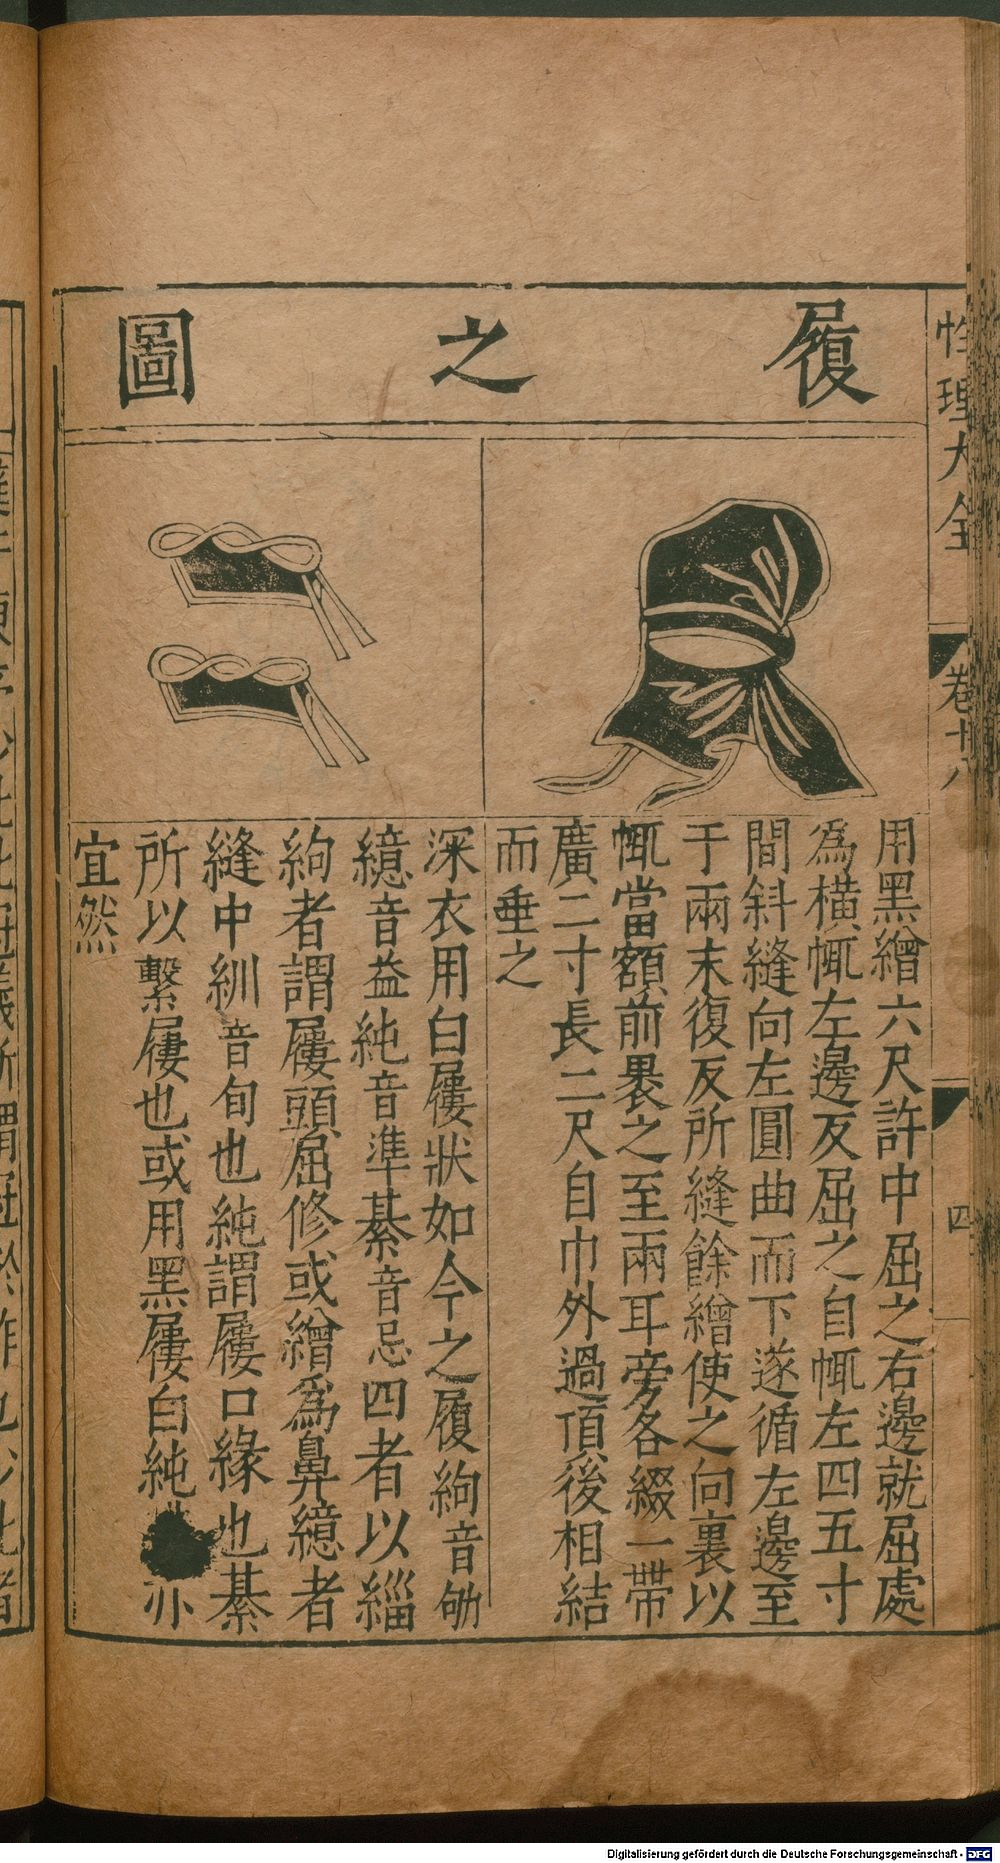 性理大全
卷十八
四
履之圖
用黑繒六尺許中屈之右邊就屈處
為橫㡇左邊反屈之自㡇左四五寸
間斜縫向左圓曲而下遂循左邊至
于兩末復反所縫餘繒使之向裏以
㡇當額前褁之至兩耳旁各綴一帶
廣二寸長二尺自巾外過頂後相結
而垂之
深衣用白屨狀如今之履絇音劬
繶音益純音準綦音忌四者以緇
絇者謂屨頭屈修或繒為鼻繶者
縫中紃音旬也純謂屨口緣也綦
所以繫屨也或用黑屨白純亦
宜然
Digitalisierung gefördert durch die Deutsche Forschungsgemeinschaft - DFG